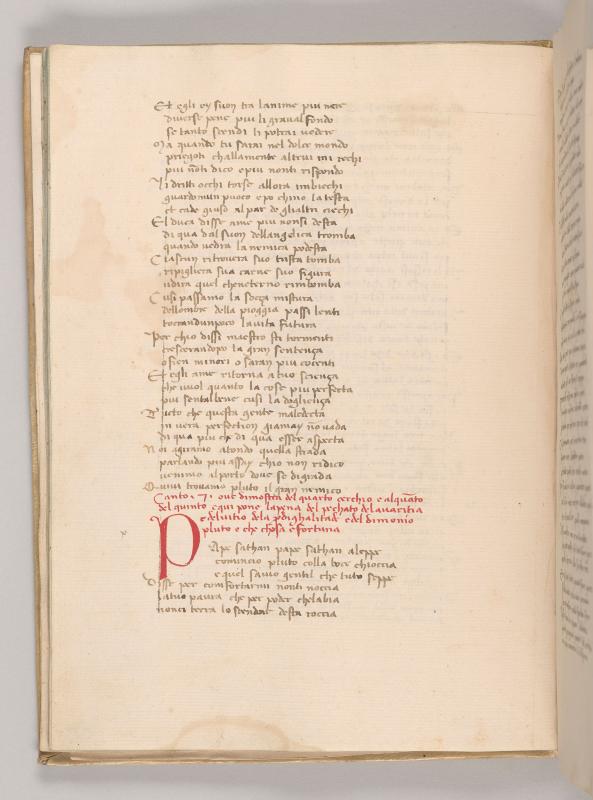 Et egli ey suon tra lanime piu nere
diverse pene piu li gravalfondo
se tanto scendi li potrai vedere
Ma quando tu sarai nel dolce mondo
priegoti challamente altrui mi rechi
piu nōti dico e piu nonti rispondo
Li dritti occhi torse allora imbiechi
guardomun puoco e po chino la testa
et cade giuso al par de glialtri ciechi
El duca disse ame piu nonsi desta
di qua dal suon dellangelica tromba
quando vedra la nemica podesta
Ciascun ritrovera suo trista tomba
ripigliera sua carne suo figura
udira quel chen eterno rimbomba
Cusi passamo la soçça mistura
dellombre della pioggia passi lenti
toccandunpoco lavita futura
Per chio dissi maestro sti tormenti
crescerandopo la gran sentença
o fien minori o saran piu cocenti
Et egli ame ritorna atuo sciença
che vuol quanto la cosa piu perfecta
piu senta lbene cusi la doglienca
Tucto che questa gente maledecta
in vera perfection giamay nō vada
di qua piu che di qua esser aspecta
Noi agiramo atondo quella strada
parlando piu assay chio non ridico
venimo alporto dove se digrada
Quivi trovamo pluto il gran nemico
Canto .7. ove dimostra del quarto cerchio e alquāto
del quinto e qui pone lapena del pechato delavaritia
e delvitio dela prodighalitade e del dimonio
pluto e che chosa e fortuna
Pape sathan pape sathan aleppe
comincio pluto colla voce chioccia
e quel savio gentil che tuto seppe
Disse per comfortarmi nonti noccia
Latuo paura che per poder chelabia
nonci terra lo scendere desta roccia